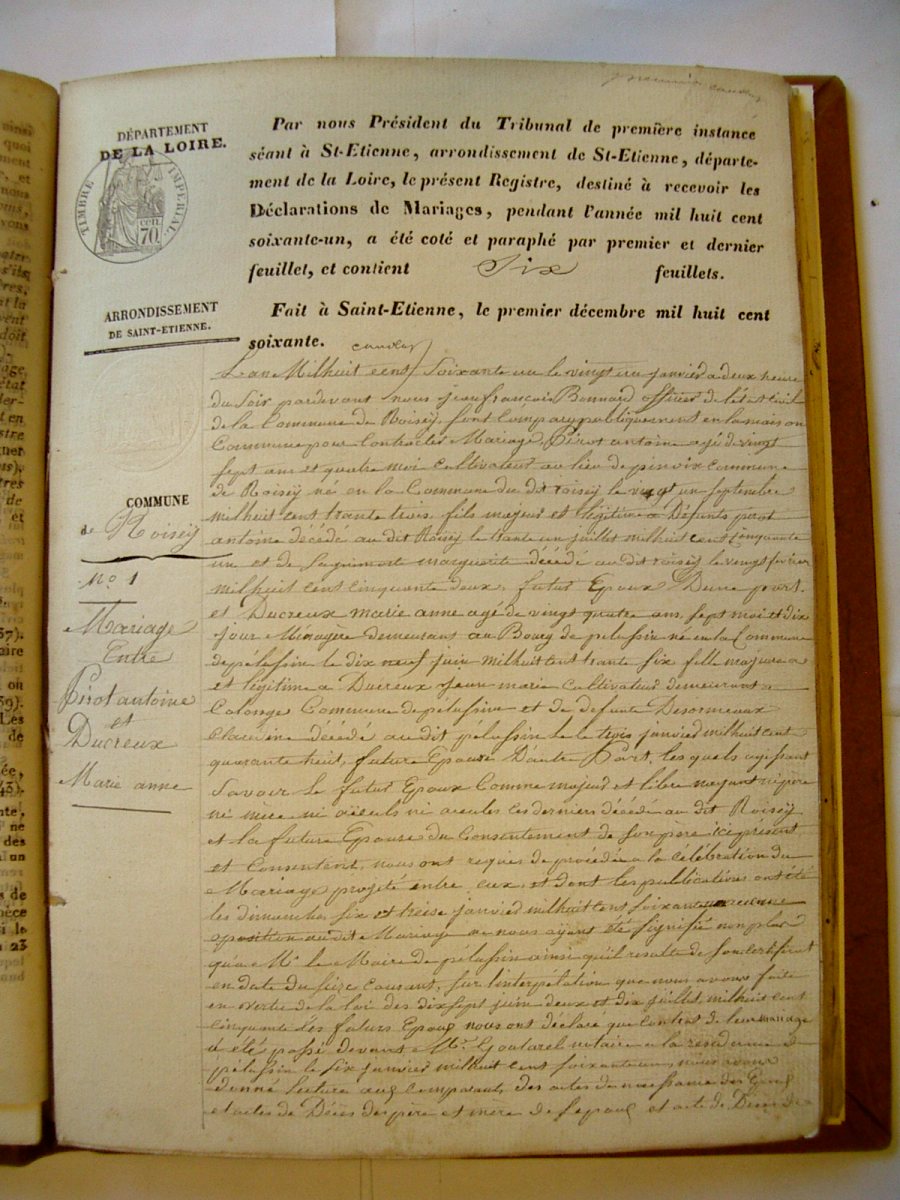 DÉPARTEMENT
DE LA LOIRE.
TIMBRE IMPÉRIAL
70 cen
ARRONDISSEMENT
DE SAINT-ETIENNE.
COMMUNE
de Roisey
N° 1
Mariage
Entre
Pirot antoine
et
Ducreux
Marie anne
Par nous Président du Tribunal de première instance
séant à St-Etienne, arrondissement de St-Etienne, départe-
ment de la Loire, le présent Registre, destiné à recevoir les
Déclarations de Mariages, pendant l'année mil huit cent
soixante-un, a été coté et paraphé par premier et dernier
feuillet, et contient Six feuillets.
Fait à Saint-Etienne, le premier décembre mil huit cent
soixante.
L'an Milhuit cent Soixante un le vingt un janvier a deux heure
du Soir pardevant nous jean françois Bonnard officier de l'état civil
de la Commune de Roisey, sont comparu publiquement en la maison
Commune pour Contracter Mariage, Pirot antoine agé de vingt
sept ans et quatre moi Cultivateur au lieu de commune
de Roisey né en la Commune du dit roisey le vingt un septembre
milhuit cent trante trois, fils majeur et légitime a Défunts pirot
antoine décédé au dit Roisey le trante un juillet milhuit cent cinquante
un et de marguerite décédé au dit roisey le vingt fevrier
milhuit cent cinquante deux, futur Epoux D'une part.
et Ducreux marie anne agé de vingt quatre ans, sept moi et dix
jour Menagère demeurant au Bourg de pelussin né en la Commune
de pélussin le dix neuf juin milhuit cent trante six fille majeure
et légitime a Ducreux jean marie Cultivateur demeurant a
Colonge Commune de pélussin et de defunte Desormeaux
Claudine décédé au dit pélussin le janvier milhuit cent
quarante huit, future Epouse D'autre Part, les quels agissant
Savoir le futur Epoux Comme majeur et libre n'ayant ni père
ni mère ni aïeuls ni aieules ces derniers décédé au dit Roisey
et la future Epouse du Consentement de Son père ici présent
et Consentent, nous ont requis de procéder a la Célébration du
Mariage projeté entre eux, et dont les publications ont été
les dimanches six et treise janvier milhuit cent soixante un aucune
opposition audit Mariage ne nous ayant été signifié non plus
qu'a Mr le Maire de pélussin ainsi qu'il résulte de son certificat
en date du seize courant, sur l'interpélation que nous avons faite
en vertu de la loi des dix sept juin deux et dix juillet milhuit cent
cinquante Les futurs Epoux nous ont déclaré que contrat de leur mariage
a été passé devant Me Goutarel notaire a la résidence de
pélussin le six janvier milhuit cent soixante un, nous avons
donné lecture aux Comparants, des actes de naissance des Epoux
et actes de Décès des père et mère de l'epoux et acte de Décès de